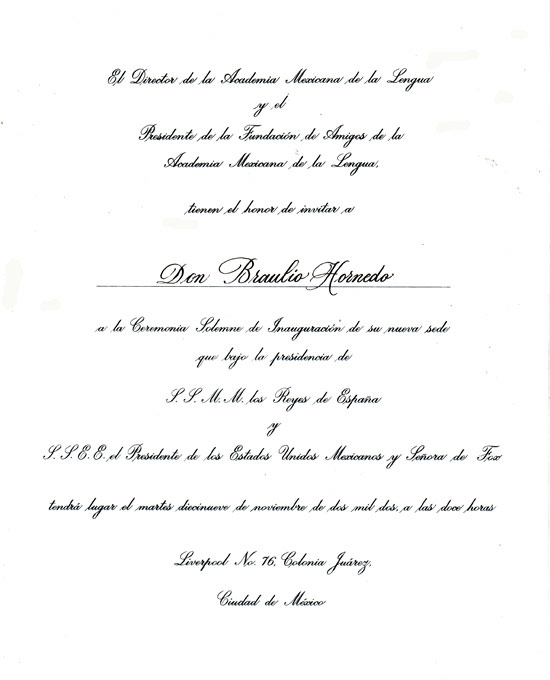 El Director de la Academia Mexicana de la Lengua
y el
Presidente de la Fundación de Amigos de la
Academia Mexicana de la Lengua,
tienen el honor de invitar a
Don Braulio Hornedo
a la Ceremonia Solemne de Inauguración de su nueva sede
que bajo la presidencia de
S.S.M.M. los Reyes de España
y
S.S.E.E. el Presidente de los Estados Unidos Mexicanos y Señora de Fox
tendrá lugar el martes diecinueve de noviembre de dos mil dos, a las doce horas
Liverpool No. 76, Colonia Juárez,
Ciudad de México